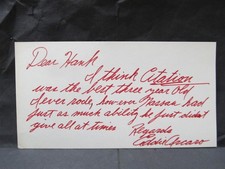 Dear Hank
I think Citation
was the best three year old
I ever rode, however Nassau had
just as much ability he just didn't
give all at times
Regards
Eddie Arcaro